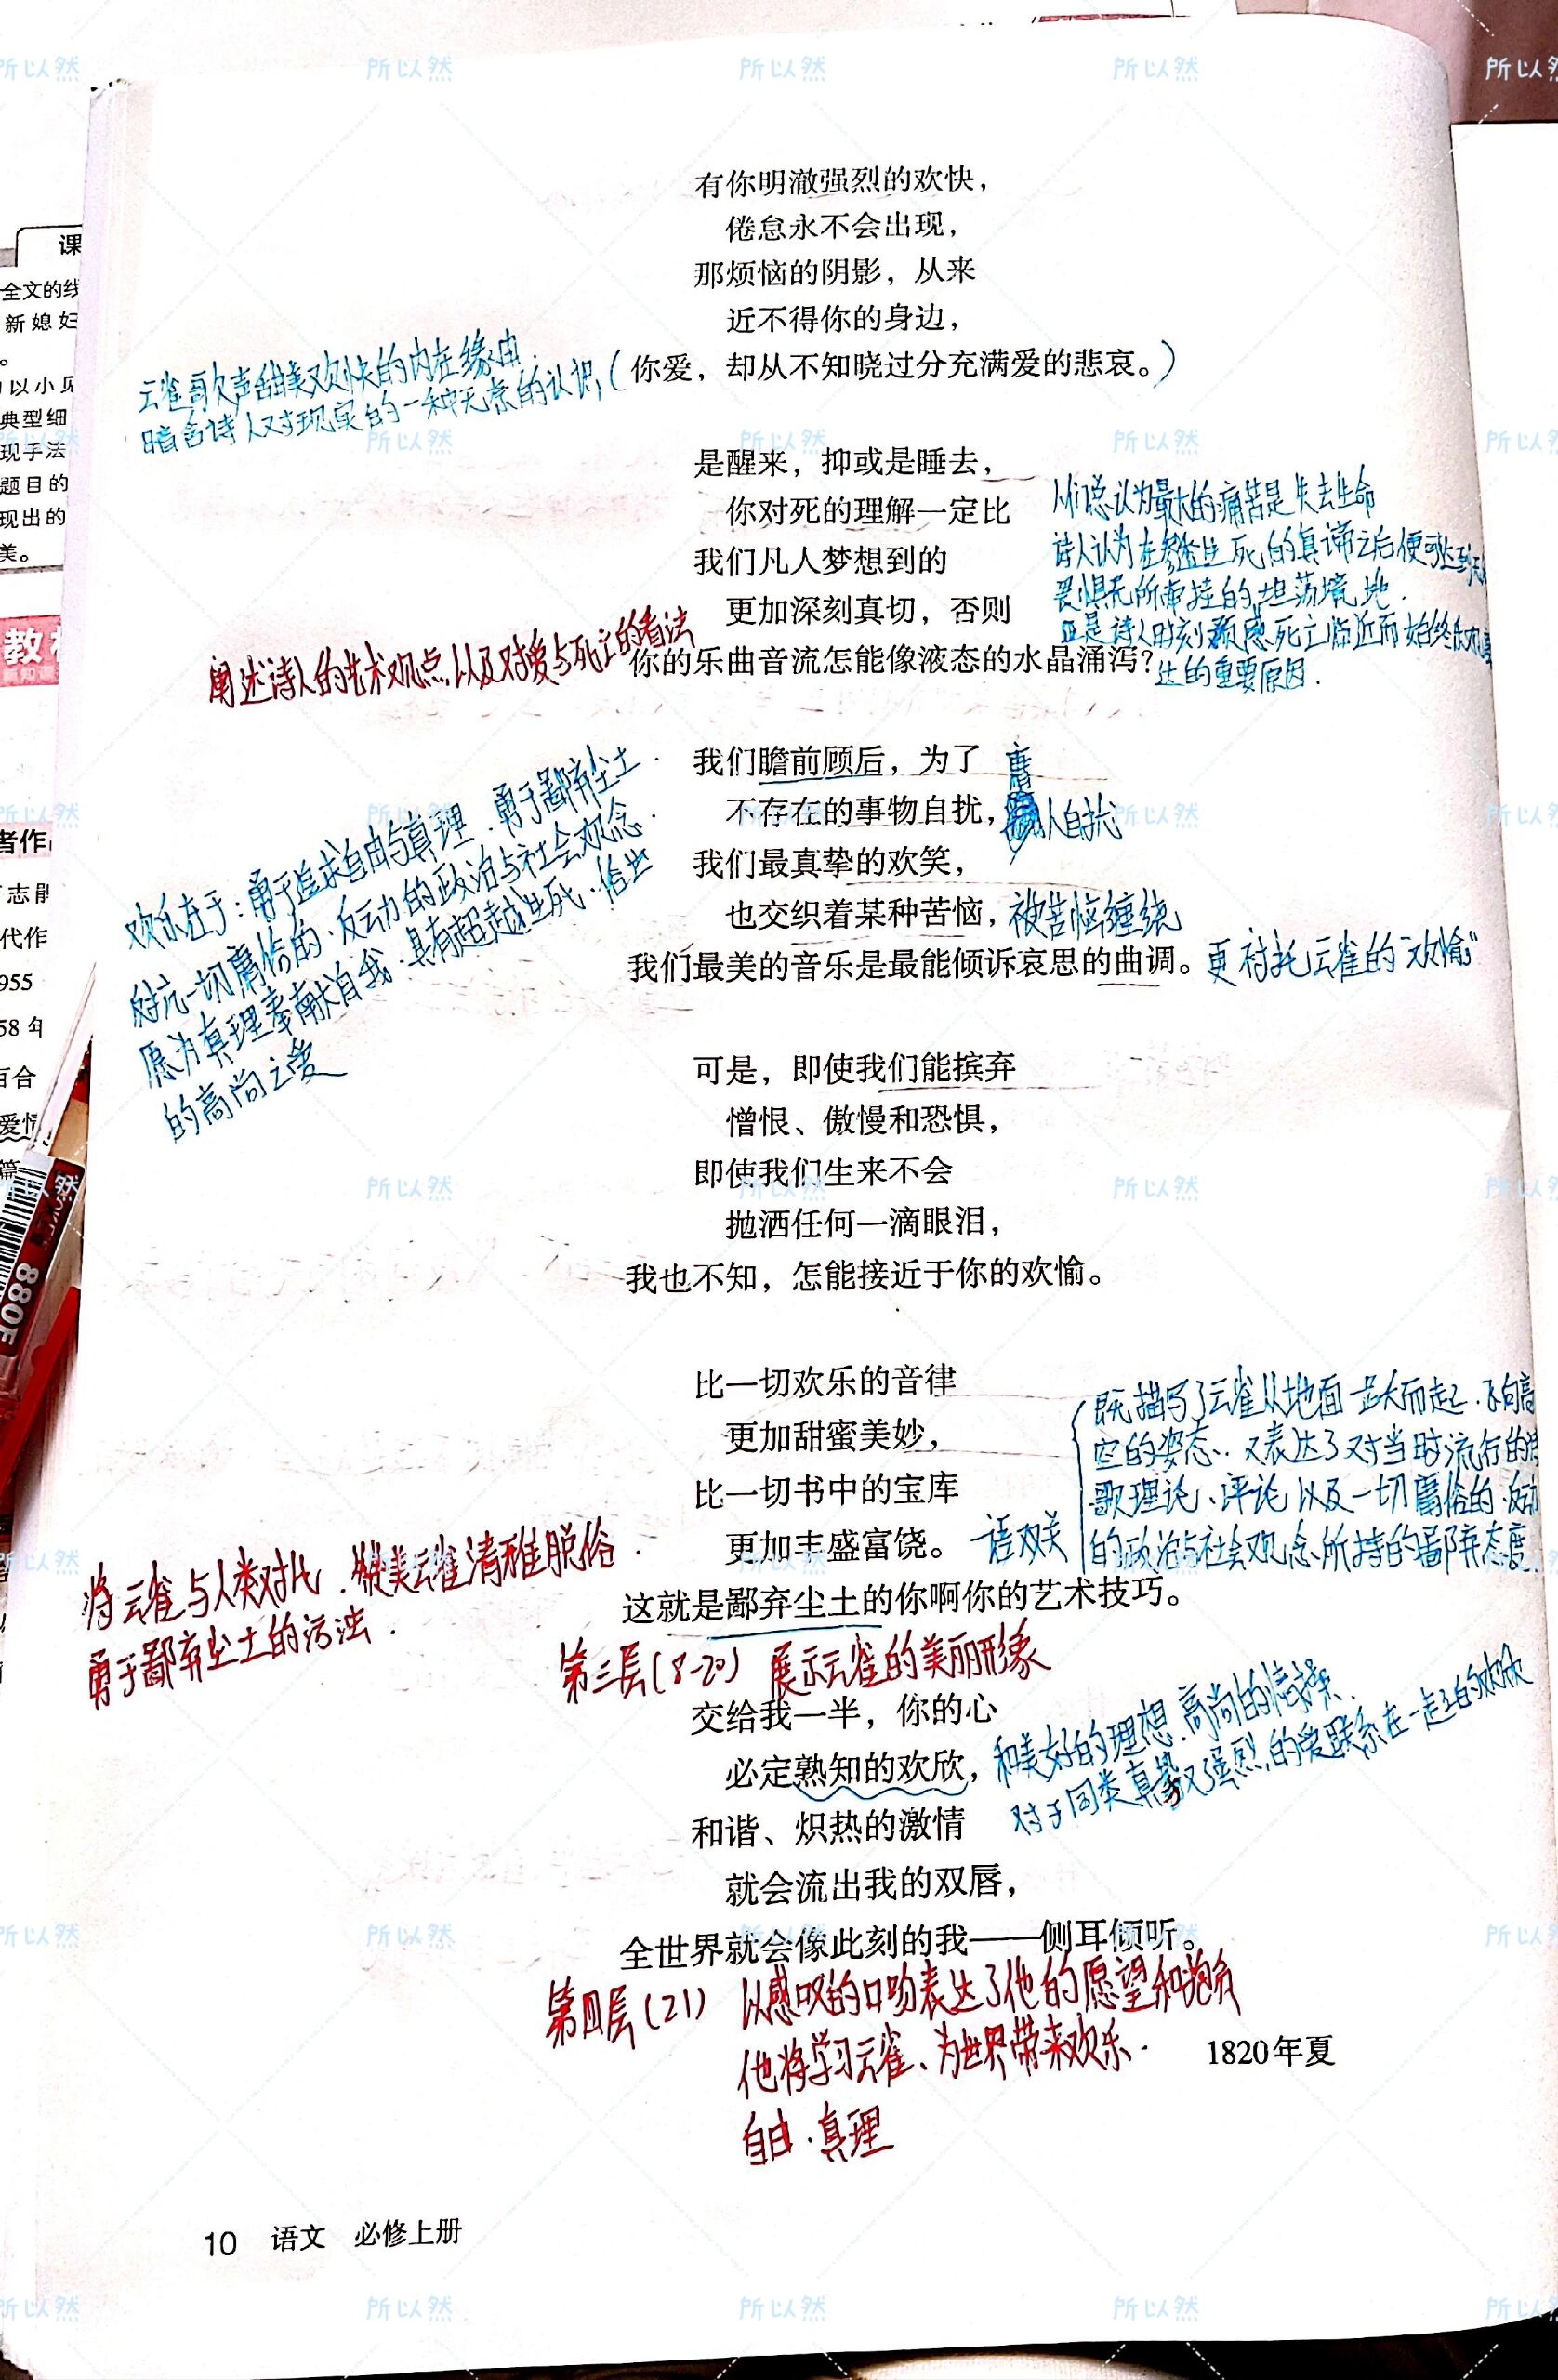 有你明澈强烈的欢快，
倦怠永不会出现，
那烦恼的阴影，从来
近不得你的身边，
你爱，却从不知晓过分充满爱的悲哀。
云雀歌声甜美欢快的内在缘由.
暗含诗人对现实的一种无奈的认识
是醒来，抑或是睡去，
你对死的理解一定比
我们凡人梦想到的
更加深刻真切，否则
你的乐曲音流怎能像液态的水晶涌泻？
人们总认为最大的痛苦是失去生命
诗人认为在参透生死的真谛之后便可达到无
畏惧无所牵挂的坦荡境地.
正是诗人时刻预感死亡临近而始终乐观
达的重要原因.
阐述诗人的艺术观点以及对爱与死亡的看法
我们瞻前顾后，为了
不存在的事物自扰，
庸人自扰
我们最真挚的欢笑，
也交织着某种苦恼，
被苦恼缠绕
我们最美的音乐是最能倾诉哀思的曲调。
更衬托云雀的"欢愉"
欢乐在于：勇于追求自由与真理.勇于鄙弃尘土.
对抗一切庸俗的.反动的政治与社会观念.
愿为真理奉献自我.具有超越生死.
的高尚之爱
可是，即使我们能摈弃
憎恨、傲慢和恐惧，
即使我们生来不会
抛洒任何一滴眼泪，
我也不知，怎能接近于你的欢愉。
比一切欢乐的音律
更加甜蜜美妙，
比一切书中的宝库
更加丰盛富饶。
这就是鄙弃尘土的你啊你的艺术技巧。
一语双关
既描写了云雀从地面一跃而起.飞向高
空的姿态.又表达了对当时流行的诗
歌理论、评论以及一切庸俗的.反动
的政治与社会观念所持的鄙弃态度.
将云雀与人类对比.赞美云雀清雅脱俗.
勇于鄙弃尘土的污浊.
第三层(8-20) 展示云雀的美丽形象
交给我一半，你的心
必定熟知的欢欣，
和谐、炽热的激情
就会流出我的双唇，
全世界就会像此刻的我——侧耳倾听。
和美好的理想.高尚的情操.
对于同类真挚又强烈的爱联系在一起的欢欣
第四层(21) 以感叹的口吻表达了他的愿望和抱负
他将学习云雀、为世界带来欢乐.
自由.真理
1820年夏
10 语文 必修上册
课
全文的线
新媳妇
以小见
典型细
现手法
题目的
现出的
美。
教材
者作品
代作
955
58年
百合
爱情
篇
880F
所以然